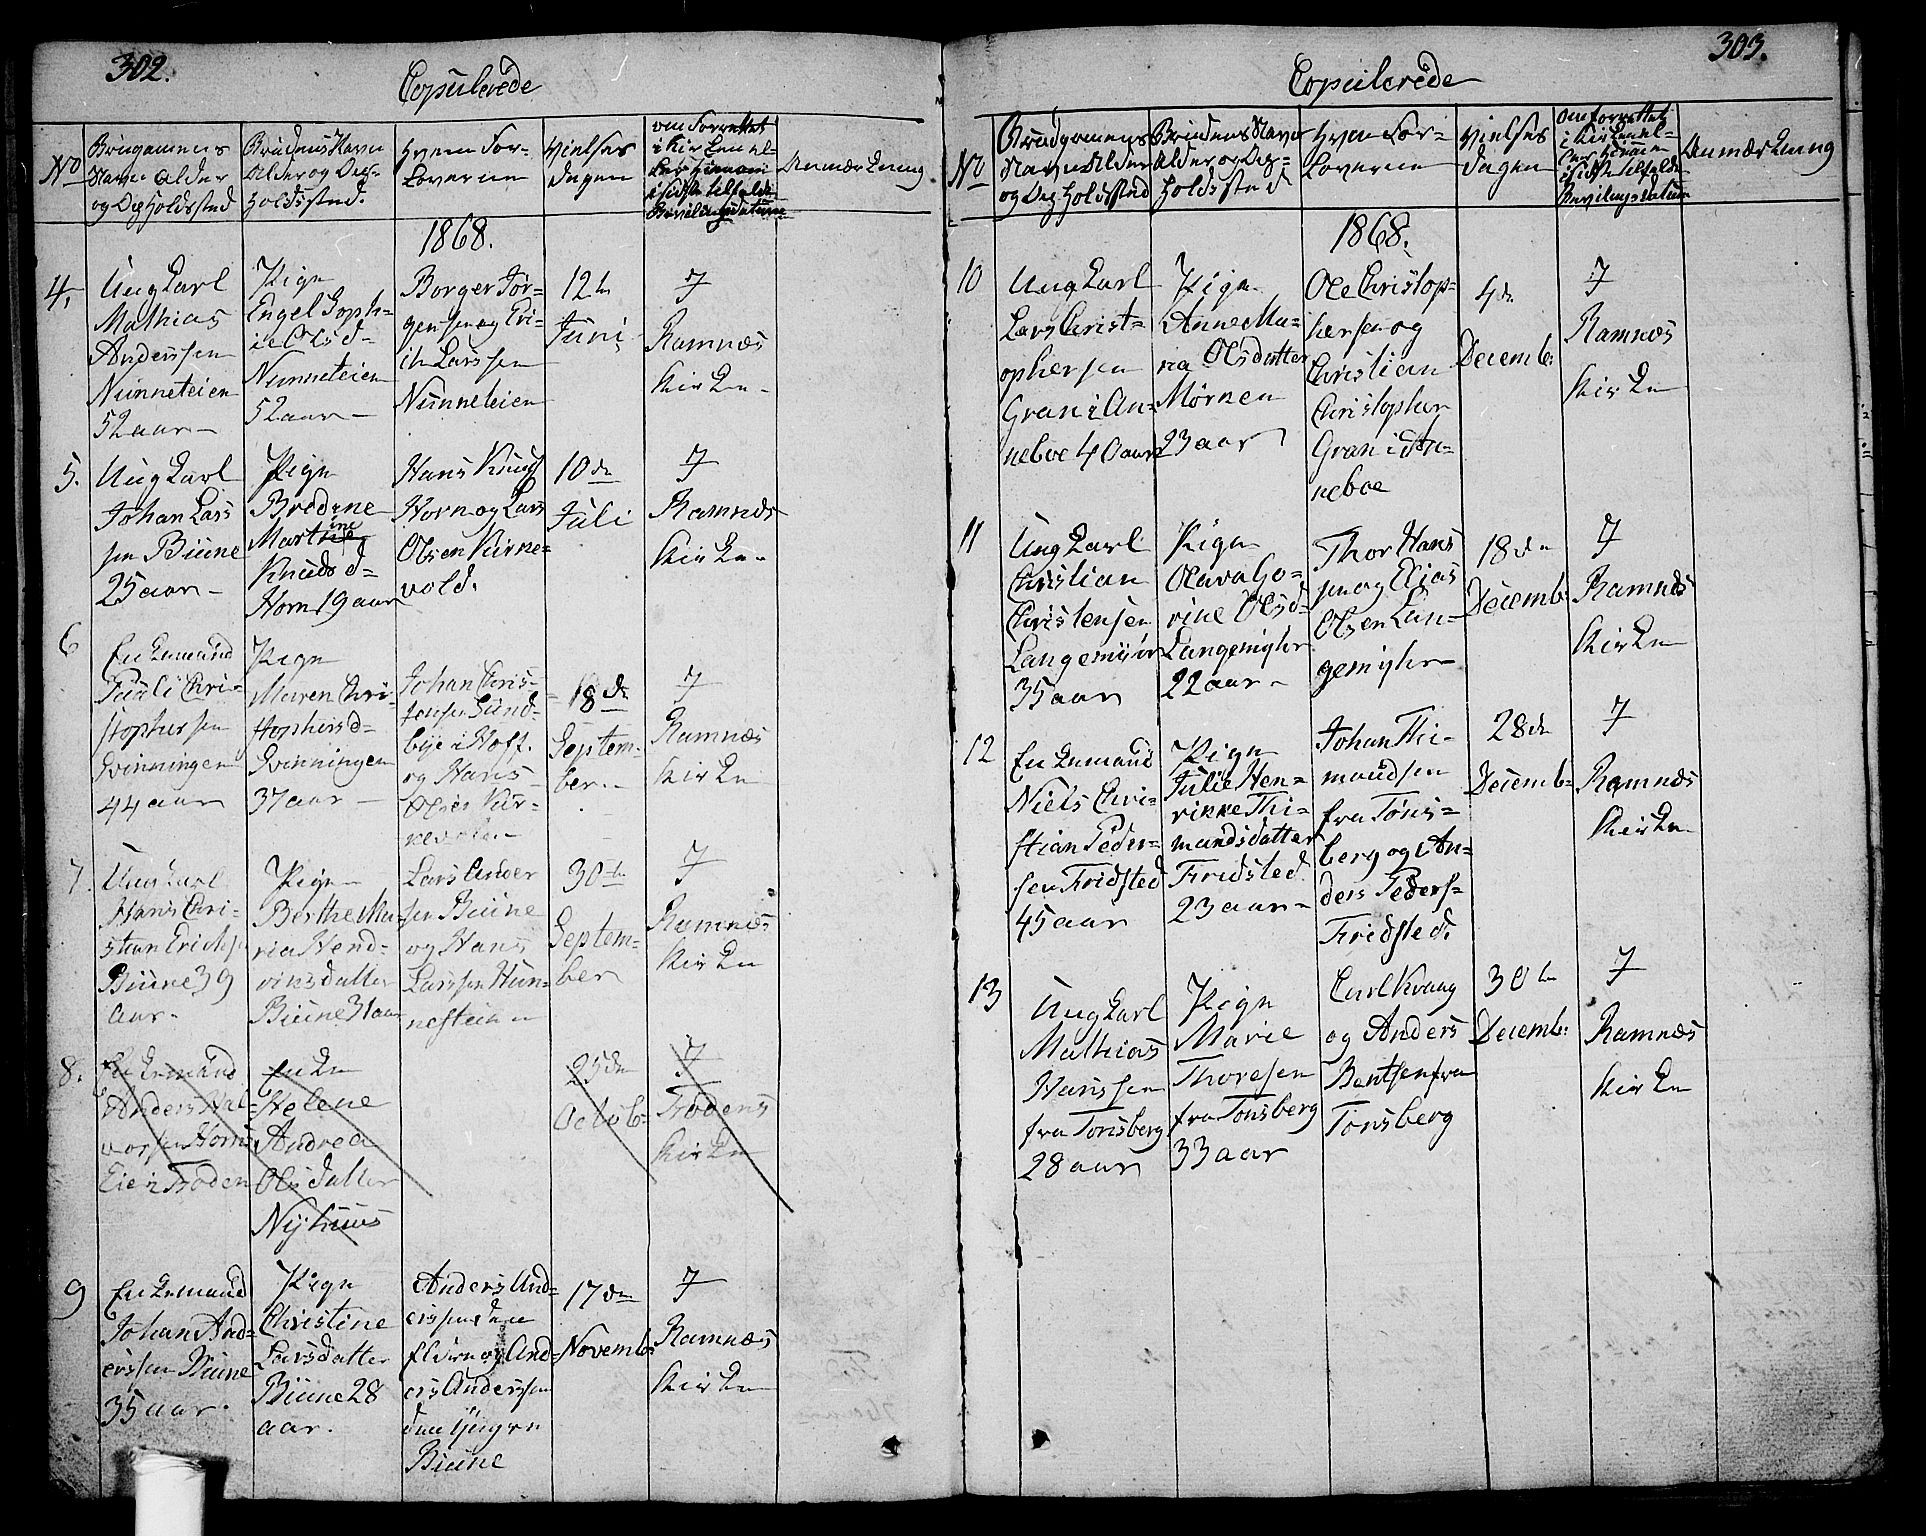 302.
Copulerede
No
Brugamens
Navn Alder
og Op holdssted
Brudens Navn
Alder og Op-
holdssted.
Hvem For-
loverne
Vielses
dagen
om forrettet
i Kirken el-
ler hiemme
i sidste tilfælde
Bevilingsdatum
Anmærkning
1868.
4.
Ungkarl
Mathias
Anderssen
Nunneteien
52 aar
Pige
Engel Soph-
ie Olsd-
Nunneteien
52 aar
Borger Jør-
gensen og Eri-
ch Larssen
Nunneteien
12te
Juni
7
Ramnæs
Kirke
5.
Ungkarl
Johan Lars
sen Biune
25 aar
Pige
Bredine
Martine
Knudsd-
Horn 19 aar
Hans Knud
Horn og Lars
Olsen Kirke-
vold.
10de
Juli
7
Ramnæs
Kirke
6
Enkemand
Pauli Chri-
stophersen
Svinningen
44 aar
Pige
Maren Chri-
stophersd-
Svinningen
37 aar
Johan Chris-
tensen Sund-
bye i Hoff.
og Hans
Olsen Kir-
kevolden
18de
Septem-
ber.
7
Ramnæs
Kirke
7.
Ungkarl
Hans Chri-
stian Erichs
Biune 39
aar.
Pige
Berthe Ma-
ria Hend-
riksdatter
Biune 31 aar
Lars Ander
sen Biune
og Hans
Larssen Nun-
nestein
30te
Septem-
ber
7
Ramnæs
Kirke
8.
Enkemand
Anders Hal-
vorsen Horns
Eie i Froden
Enke
Helene
Andrea
Olsdatter
Nyhuus
25de
Octob:
7
Frodens
Kirke
9
Enkemand
Johan And-
erssen Biune
35 aar.
Pige
Christine
Larsdatter
Biune 28
aar.
Anders And-
erssen den
eldre og And-
ers Anderssen
den yngre
Biune
17de
Novemb:
7
Ramnæs
Kirke
303.
Copulerede
No
Brudgomens
Navn Alder
og Op holdssted
Brudens Navn
Alder og Op-
holdssted
Hvem For-
loverne
Vielses
dagen
om forrettet
i Kirken el-
ler hiemme
i sidste tilfælde
Bevilingsdatum
Anmærkning
1868.
10
Ungkarl
Lars Christ-
ophersen
Gran i An-
neboe 40 aar
Pige
Anne Ma-
ria Olsdatter
Mørnen
23 aar
Ole Christop-
hersen og
Christian
Christopher
Gran i An-
neboe
4de
Decemb:
7
Ramnæs
Kirke
11
Ungkarl
Christian
Christensen
Langemyhr
35 aar
Pige
Olava So-
rine Olsd-
Langemyhr
22 aar
Thor Hans
sen og Elias
Olsen Lan-
gemyhr
18de
Decemb:
7
Ramnæs
Kirke
12
Enkemand
Niels Chri-
stian Peder-
sen Fridsted
45 aar
Pige
Julie Hen-
rikke Thi-
mandsdatter
Fridsted
23 aar
Johan Thi-
mandsen
fra Tøns-
berg og An-
ders Peders-
Fridsted.
28de
Decemb:
7
Ramnæs
Kirke
13
Ungkarl
Mathias
Hanssen
fra Tonsberg
28 aar
Pige
Marie
Thoresen
fra Tonsberg
33 aar
Carl Kraag
og Anders
Bentsen fra
Tonsberg
30te
Decemb:
7
Ramnæs
Kirke